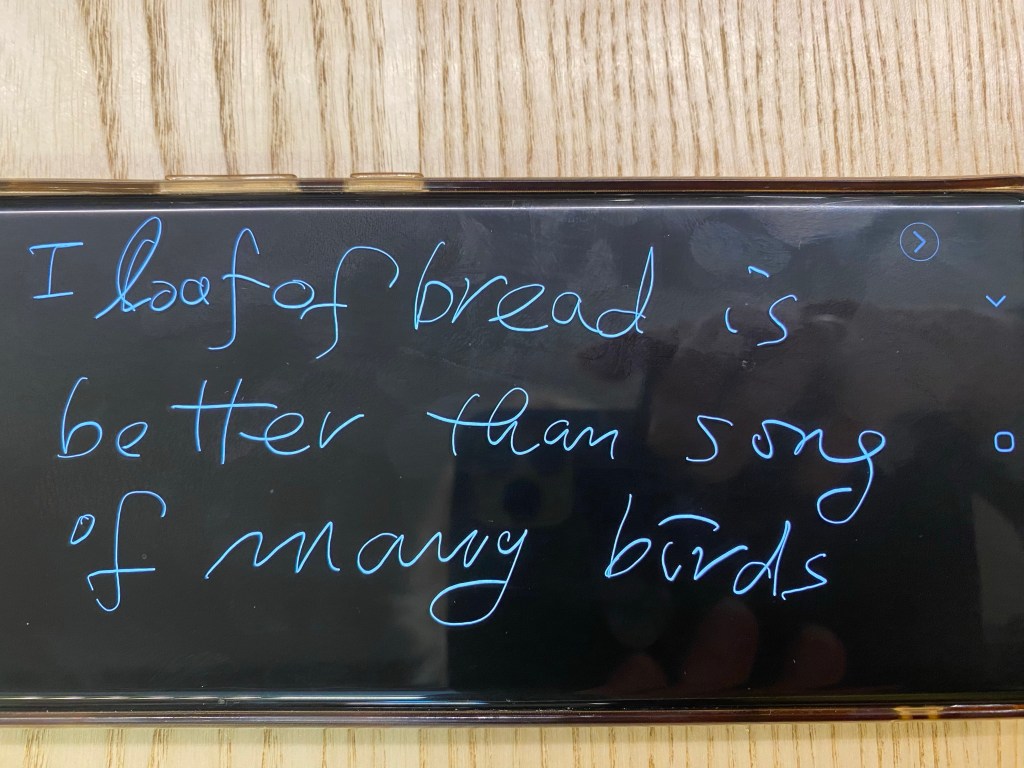 I loaf of bread is
better than song
of many birds